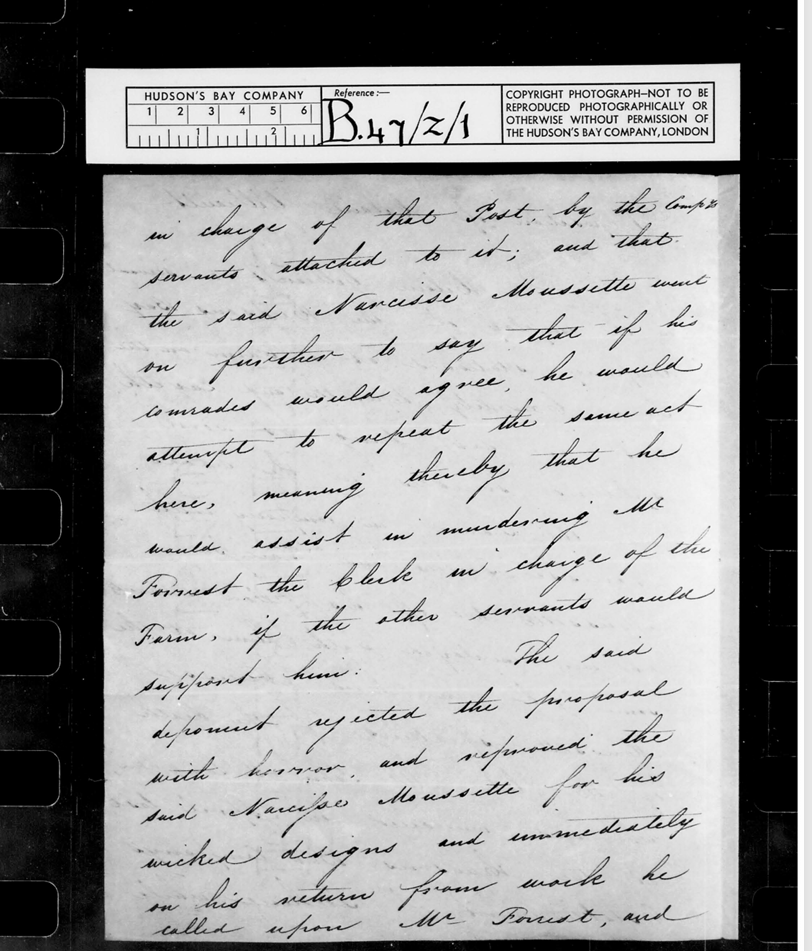 HUDSON'S BAY COMPANY
1 2 3 4 5 6
1 2
Reference:—
B.47/Z/1
COPYRIGHT PHOTOGRAPH—NOT TO BE
REPRODUCED PHOTOGRAPHICALLY OR
OTHERWISE WITHOUT PERMISSION OF
THE HUDSON'S BAY COMPANY, LONDON
in charge of that Post, by the Compys
servants attached to it; and that
the said Narcisse Moussette went
on further to say that if his
comrades would agree, he would
attempt to repeat the same act
here, meaning thereby that he
would assist in murdering Mr
Forrest the Clerk in charge of the
Farm, if the other servants would
support him. The said
deponent rejected the proposal
with horror, and reproved the
said Narcisse Moussette for his
wicked designs and immediately
on his return from work he
called upon Mr Forrest, and